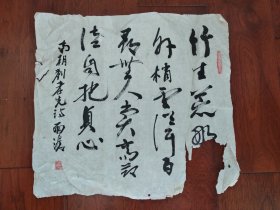 竹生荒野
外梢云耸百
寻无人赏高节
徒自抱贞心
南朝刘孝先诗 雨